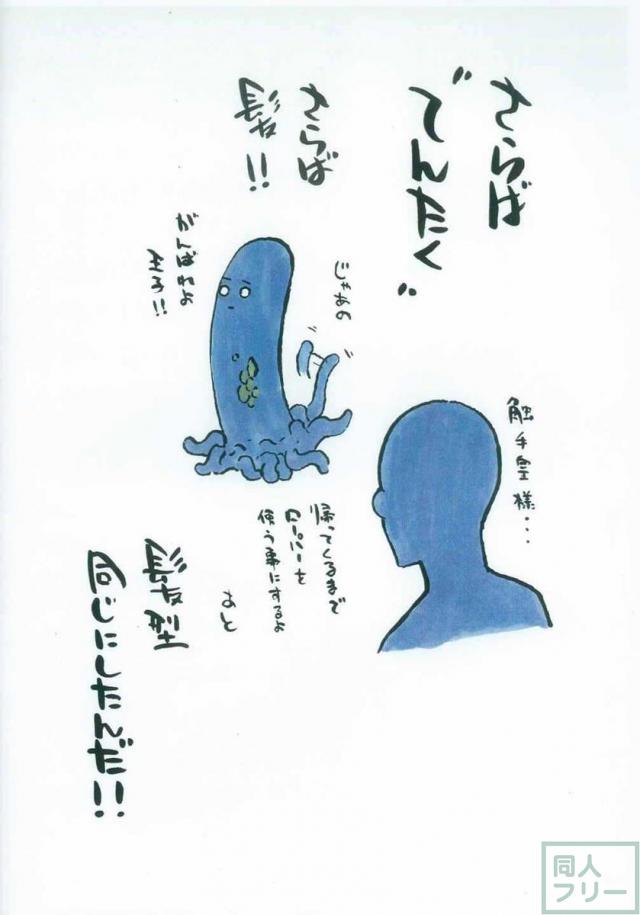 さらば
“でんたく”
さらば
髪!!
じゃあの
がんばれよ
王子!!
触手雲様...
帰ってくるまで
ローパーを
使う事にするよ
あと
髪型
同じにしたんだ!!
同人
フリー